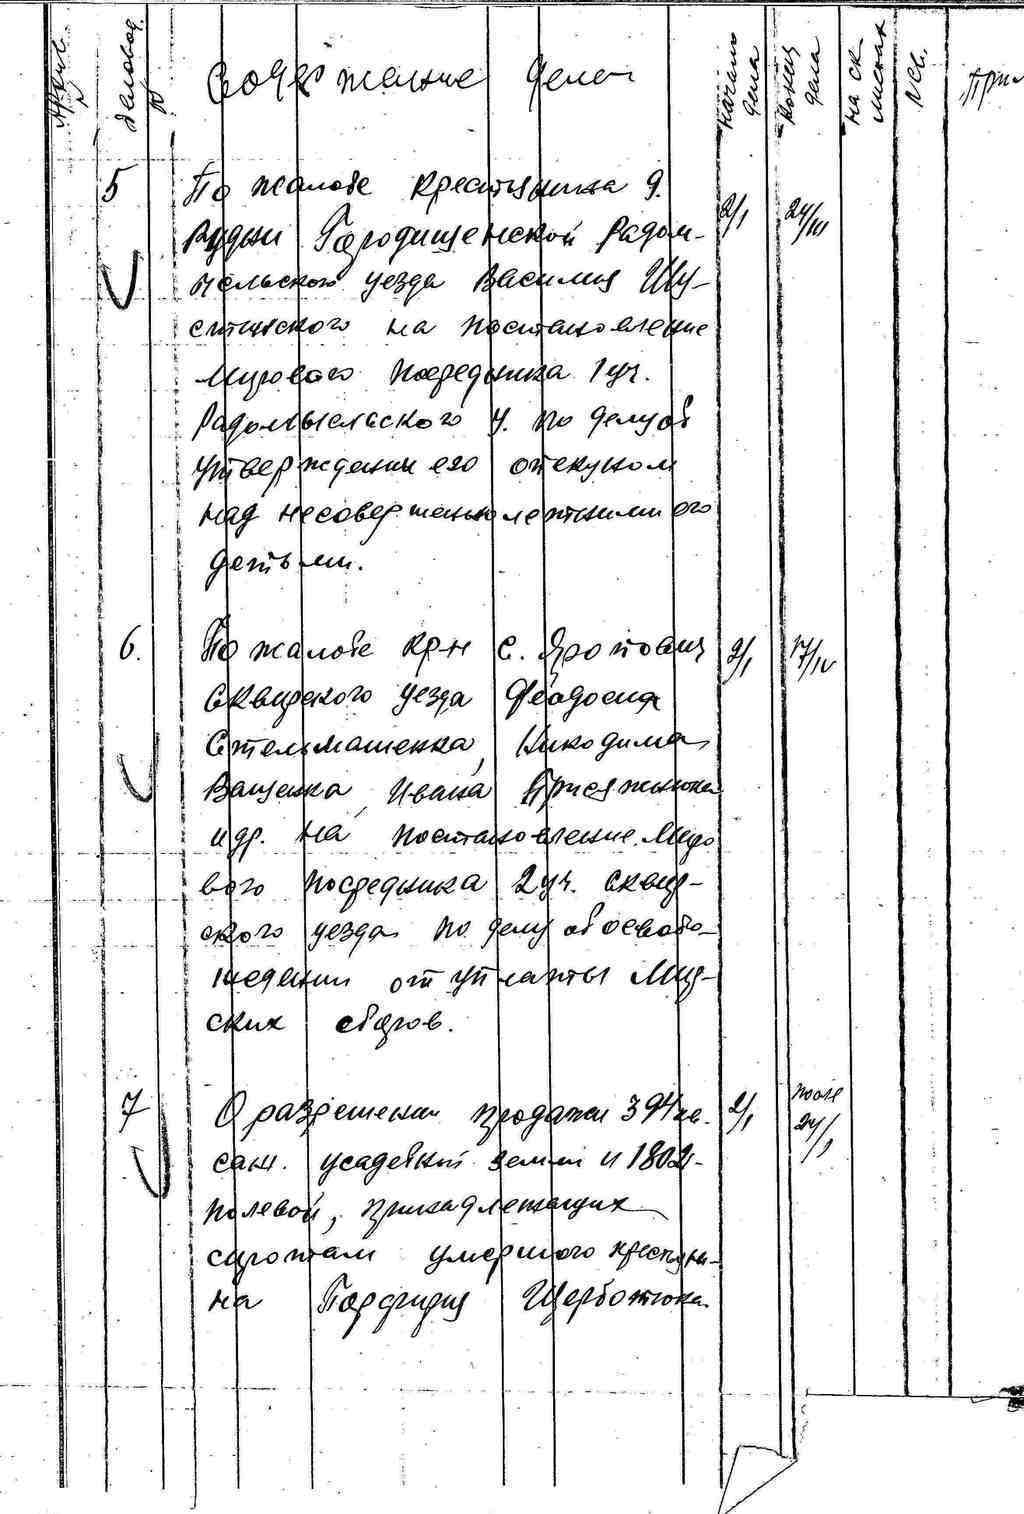 Архив. №
Деловод. №
Содержание дела
начало дела
конец дела
на ск. листах
Прим
5 По жалобе крестьянина д. 2/I 24/III
Рудни Городищенской Радом-
ысльского уезда Василия
на постановление
Мирового посредника 1 уч.
Радомысльского у. по делу об
утверждении его опекуном
над несовершеннолетними его
детьми.
6. По жалобе кр-н с. Яроповиц 2/I 17/IV
Сквирского уезда Феодосия
Стельмашенка, Никодима
Ващенка, Ивана Присяжнюка
и др. на постановление Миро
вого посредника 2 уч. Сквир-
ского уезда по делу об освобо-
ждении от уплаты Мир-
ских сборов.
7 О разрешении продажи 394 кв. 2/I после 24/I
саж. усадебной земли и 1802-
полевой, принадлежащих
сиротам умершего крестьяни-
на Порфирия Щерботюка